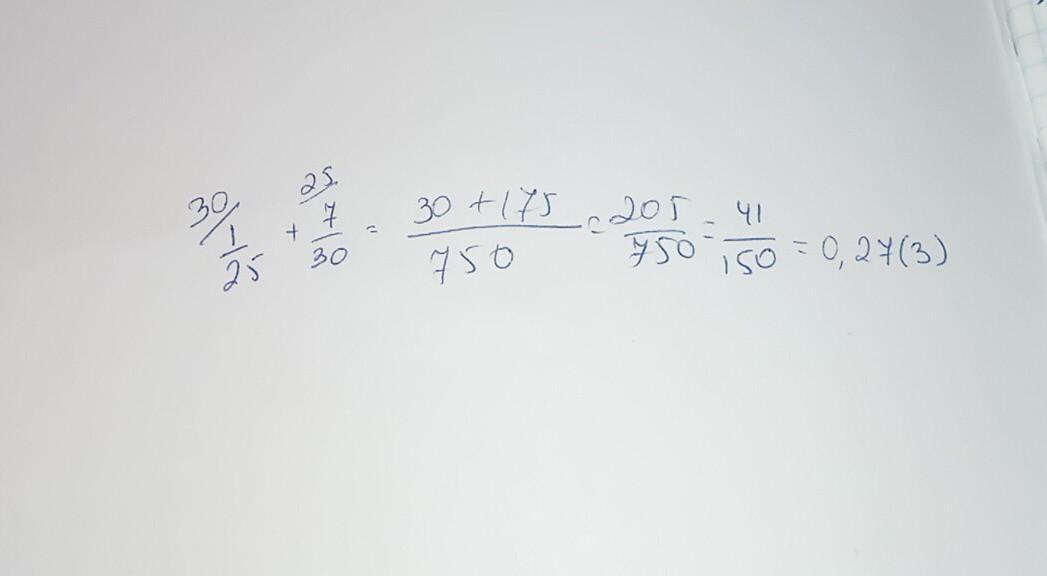 30/ 1/25 + 25/ 7/30 = (30 + 175)/750 = 205/750 = 41/150 = 0,27(3)